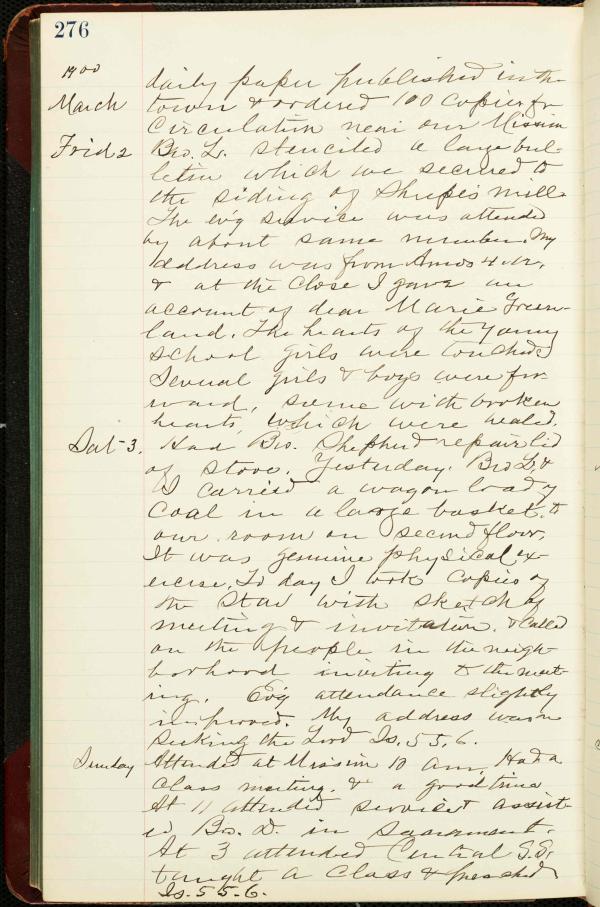 276
1900 daily paper published in the
March town & ordered 100 copies for
circulation near our Mission
Frid 2 Bro. L. stenciled a large bul-
letin which we secured to
the siding of Shupe's mill.
The ev'g service was attended
by about same number. My
address was from Amos 4.12,
& at the close I gave an
account of dear Marie Green-
land. The hearts of the young
school girls were touched
Several girls & boys were for-
ward, some with broken
hearts, which were healed.
Sat 3. Had Bro. Shepherd repair lid
of stove. Yesterday. Bro L. &
I carried a wagon load of
coal in a large basket. to
our room on second floor.
It was genuine physical ex-
ercise. To day I took copies of
the Star with sketch of
meeting & invitation. & called
on the people in the neigh-
borhood inviting to the meet-
ing. Ev'g attendance slightly
improved. My address was on
Seeking the Lord Is. 55.6.
Sunday Attended at Mission 10 am Had a
class meeting. & a good time
At 11 attended service & assist-
ed Bro. D. in Sacrament.
At 3 attended Central S.S.
taught a class & preached
Is. 55.6.